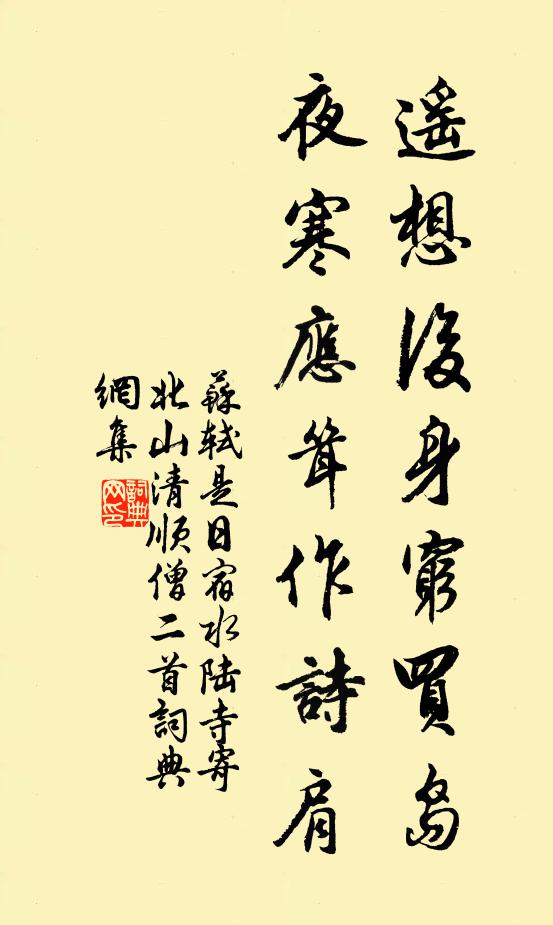 遙想後身窮買島
夜寒應聳作詩肩
蘇軾是日宿水陸寺寄
北山清順僧二首詞典
網集
詞典
网印